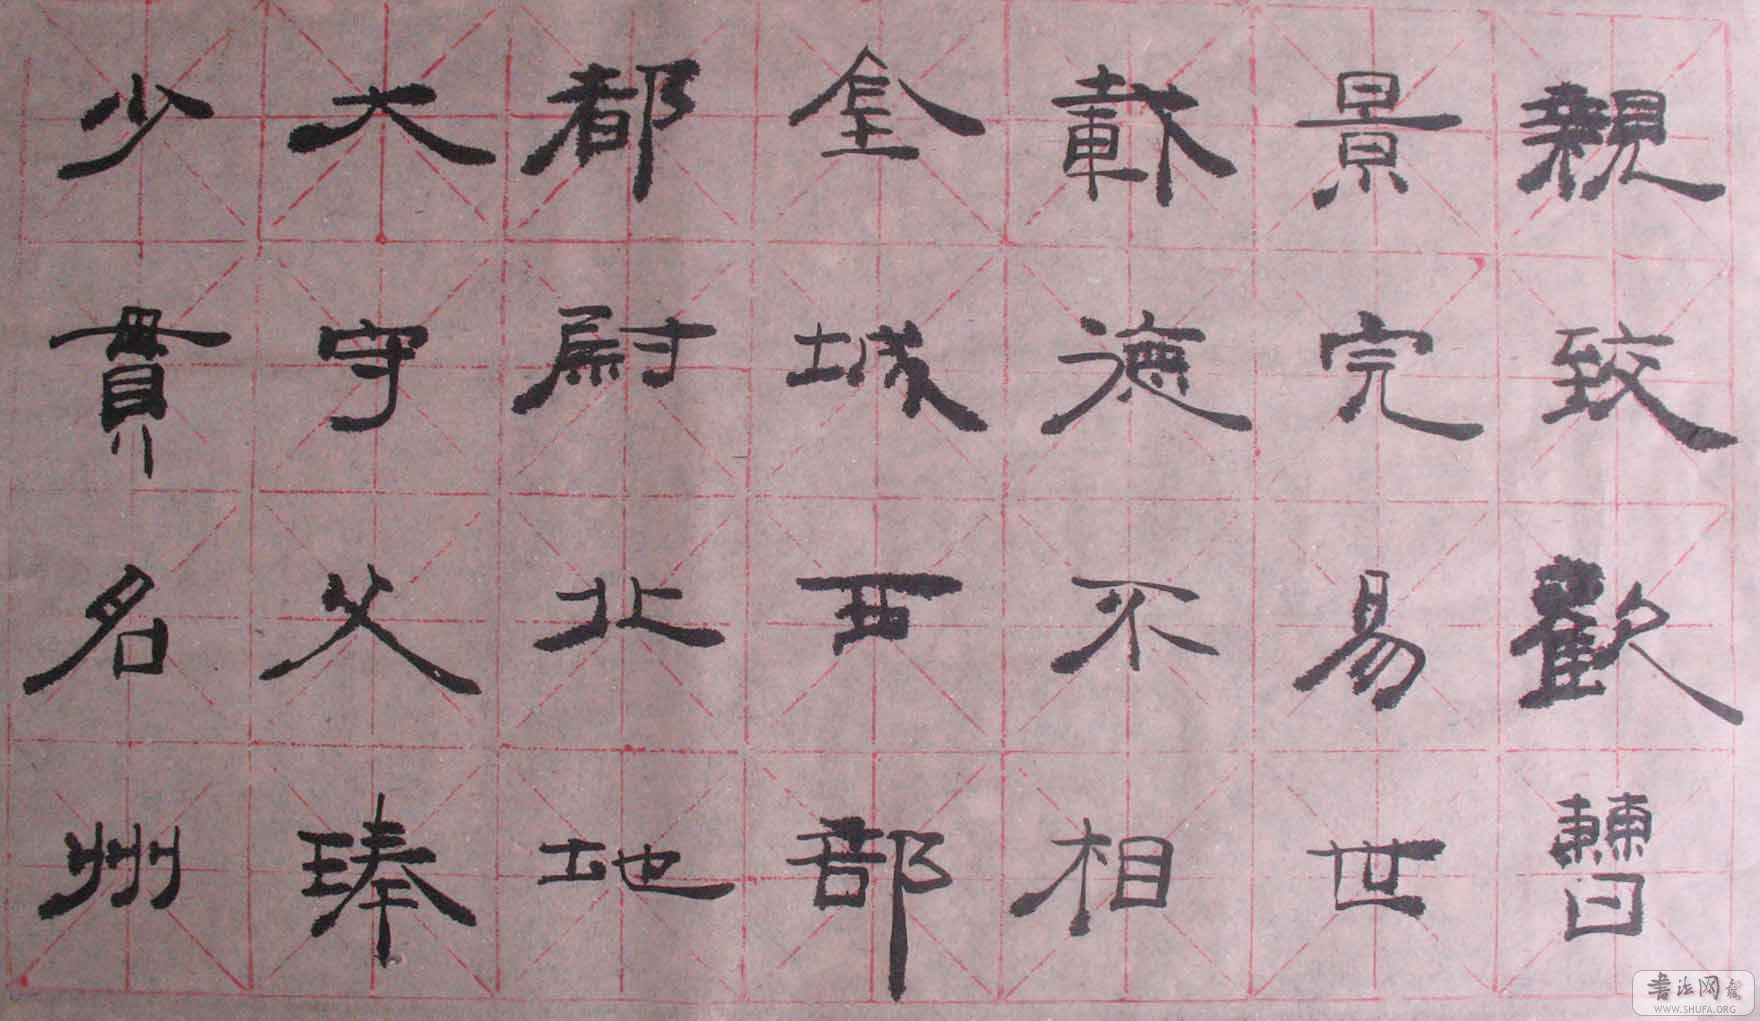 親致歡曹
景完易世
載德不相
金城西部
都尉北地
大守父琫
少貫名州
書法网
WWW.SHUFA.ORG